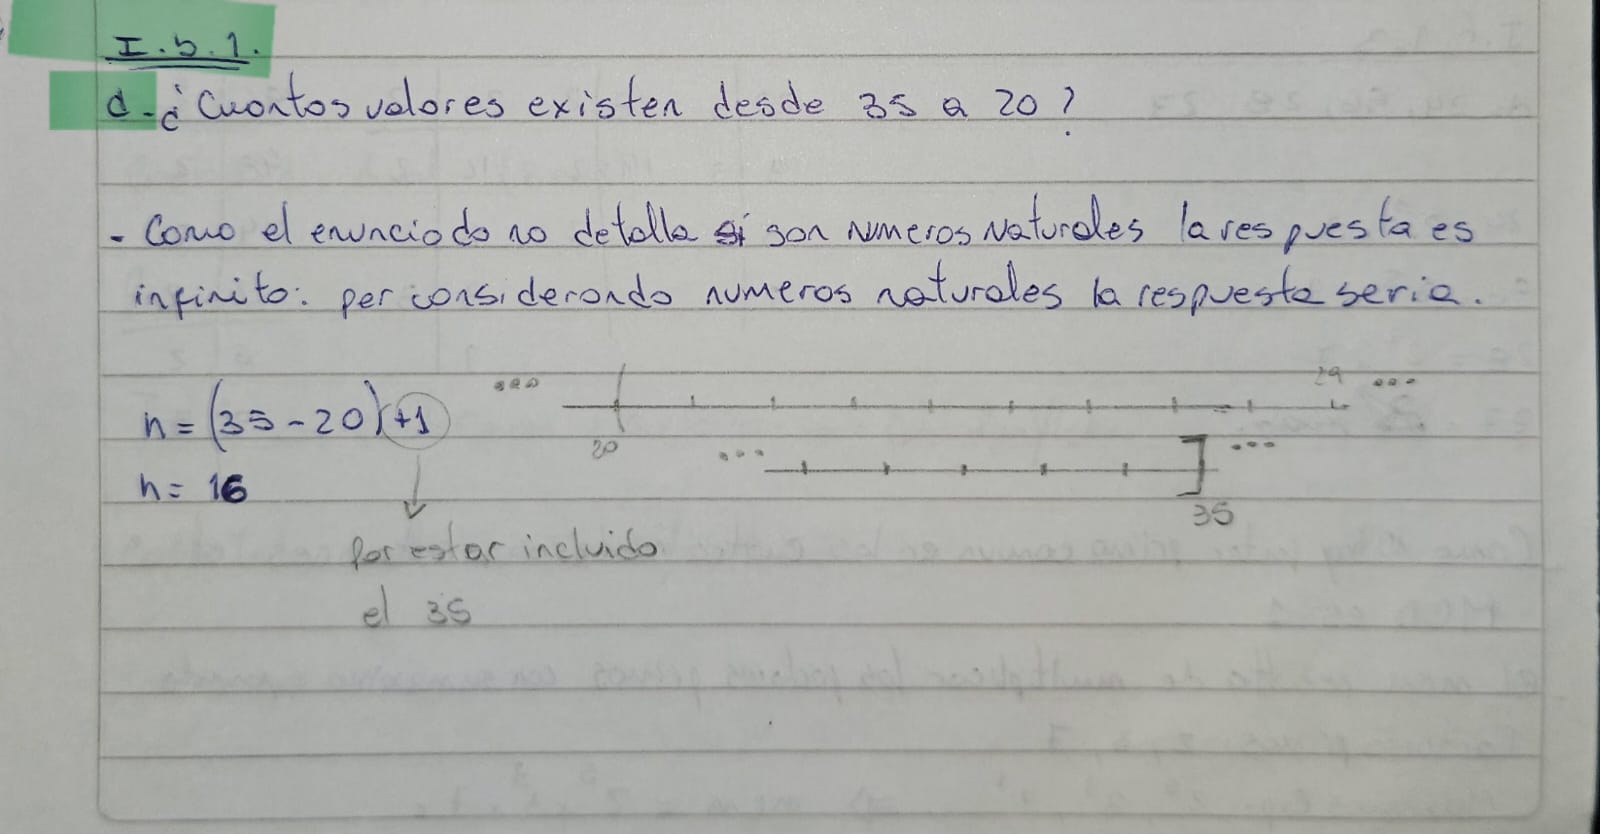 I.b.1.
d-¿Cuantos valores existen desde 35 a 20?
- Como el enunciado no detalla si son numeros Naturales la respuesta es
infinito: per considerando numeros naturales la respuesta seria.
n = (35-20)+1
n = 16
... 29 ...
20
... ...
35
Por estar incluido
el 35